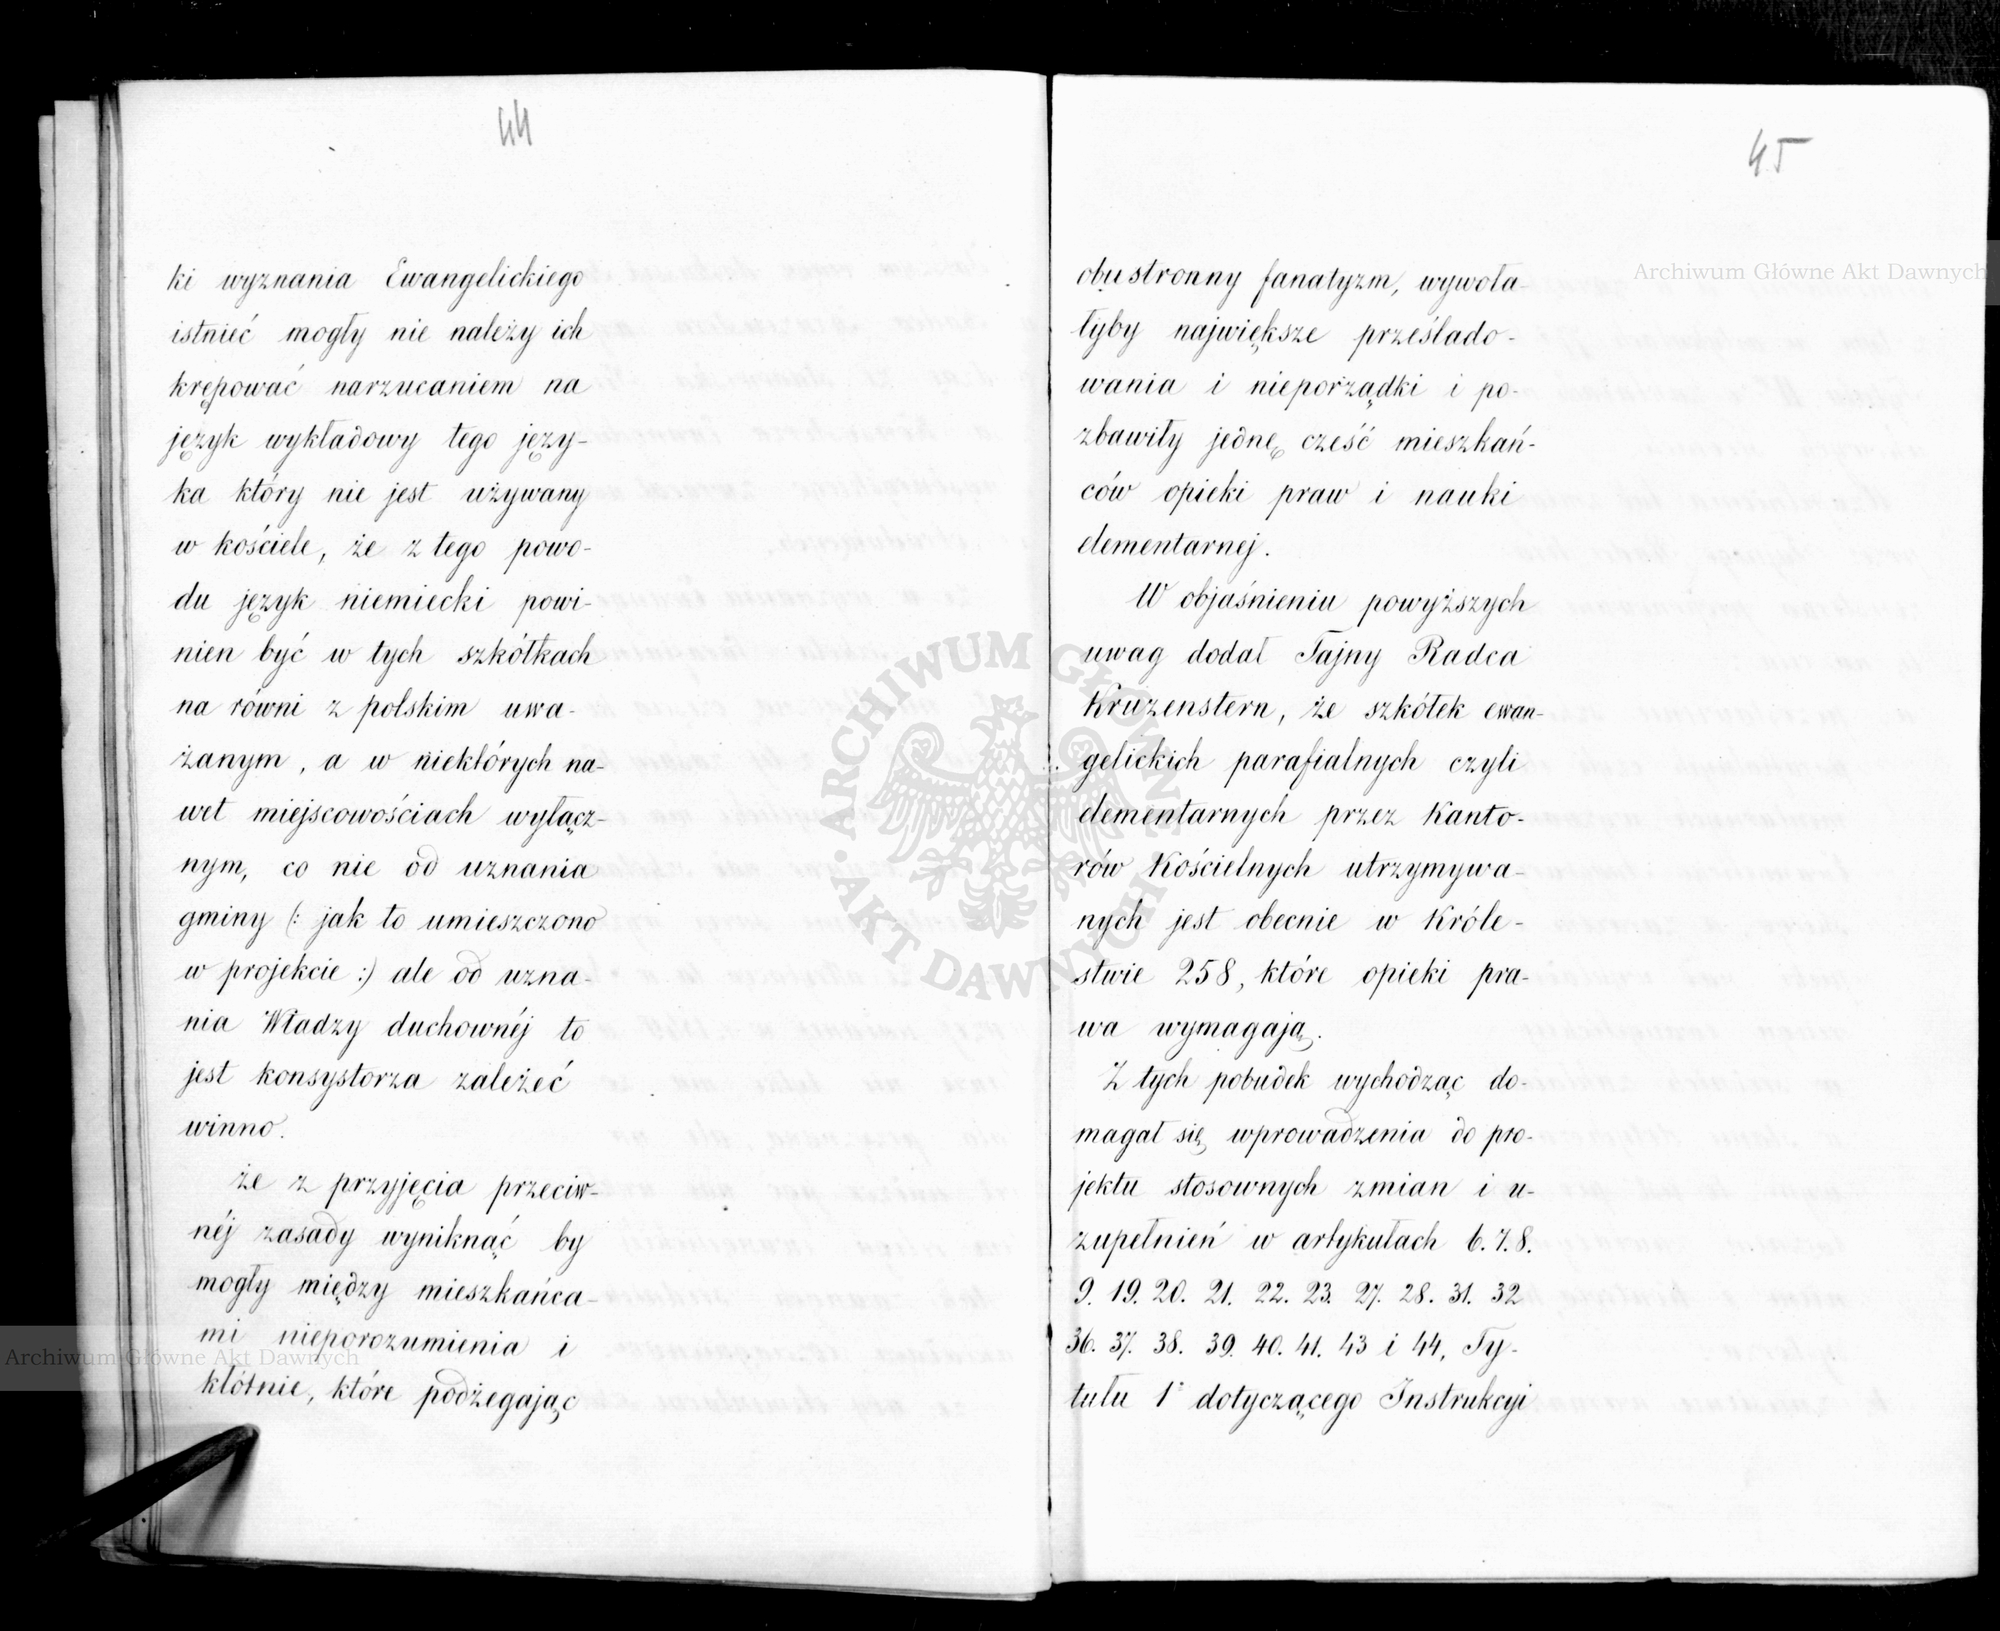 44
ki wyznania Ewangelickiego
istnieć mogły nie należy ich
krępować narzucaniem na
język wykładowy tego języ-
ka który nie jest używany
w kościele, że z tego powo-
du język niemiecki powi-
nien być w tych szkółkach
na równi z polskim uwa-
żanym, a w niektórych na-
wet miejscowościach wyłącz-
nym, co nie od uznania
gminy (: jak to umieszczono
w projekcie :) ale od uzna-
nia Władzy duchownéj to
jest konsystorza zależeć
winno.
że z przyjęcia przeciw-
néj zasady wyniknąć by
mogły między mieszkańca-
mi nieporozumienia i
kłótnie, które podżegając
45
obustronny fanatyzm, wywoła-
łyby największe prześlado-
wania i nieporządki i po-
zbawiły jednę cześć mieszkań-
ców opieki praw i nauki
elementarnej.
W objaśnieniu powyższych
uwag dodał Tajny Radca
Kruzenstern, że szkółek ewan-
gelickich parafialnych czyli
elementarnych przez Kanto-
rów Kościelnych utrzymywa-
nych jest obecnie w Króle-
stwie 258, które opieki pra-
wa wymagają.
Z tych pobudek wychodząc do-
magał się wprowadzenia do pro-
jektu stosownych zmian i u-
zupełnień w artykułach 6. 7. 8.
9. 19. 20. 21. 22. 23. 27. 28. 31. 32
36. 37. 38. 39. 40. 41. 43 i 44, Ty-
tułu 1° dotyczącego Instrukcyi
Archiwum Główne Akt Dawnych
Archiwum Główne Akt Dawnych
ARCHIWUM GŁÓWNE AKT DAWNYCH